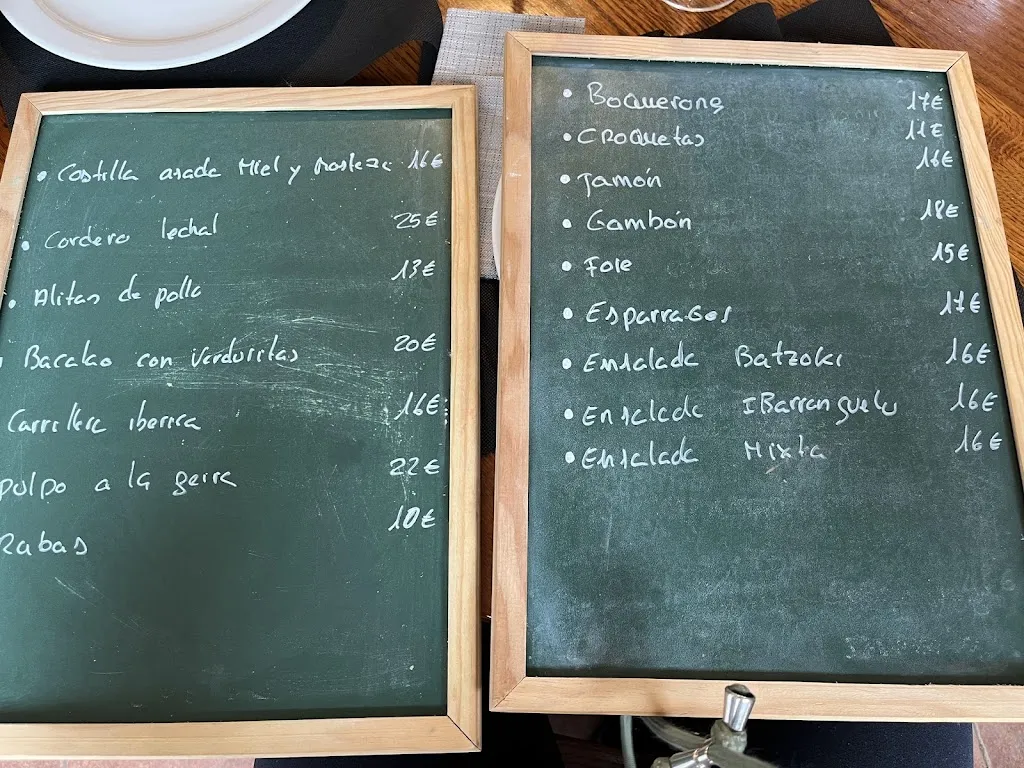 • Costilla asada Miel y mosteza 16€
• Cordero lechal 25€
• Alitas de pollo 13€
• Bacalao con verduritas 20€
Carrillera iberica 16€
pulpo a la gerra 22€
Rabas 10€
• Boquerones 17€
• CROQuetas 11€
• Jamón 16€
• Gambón 18€
• Foie 15€
• EsparraGos 17€
• Ensalada Batzoki 16€
• Ensalada IBarranguelu 16€
• Ensalada Mixta 16€